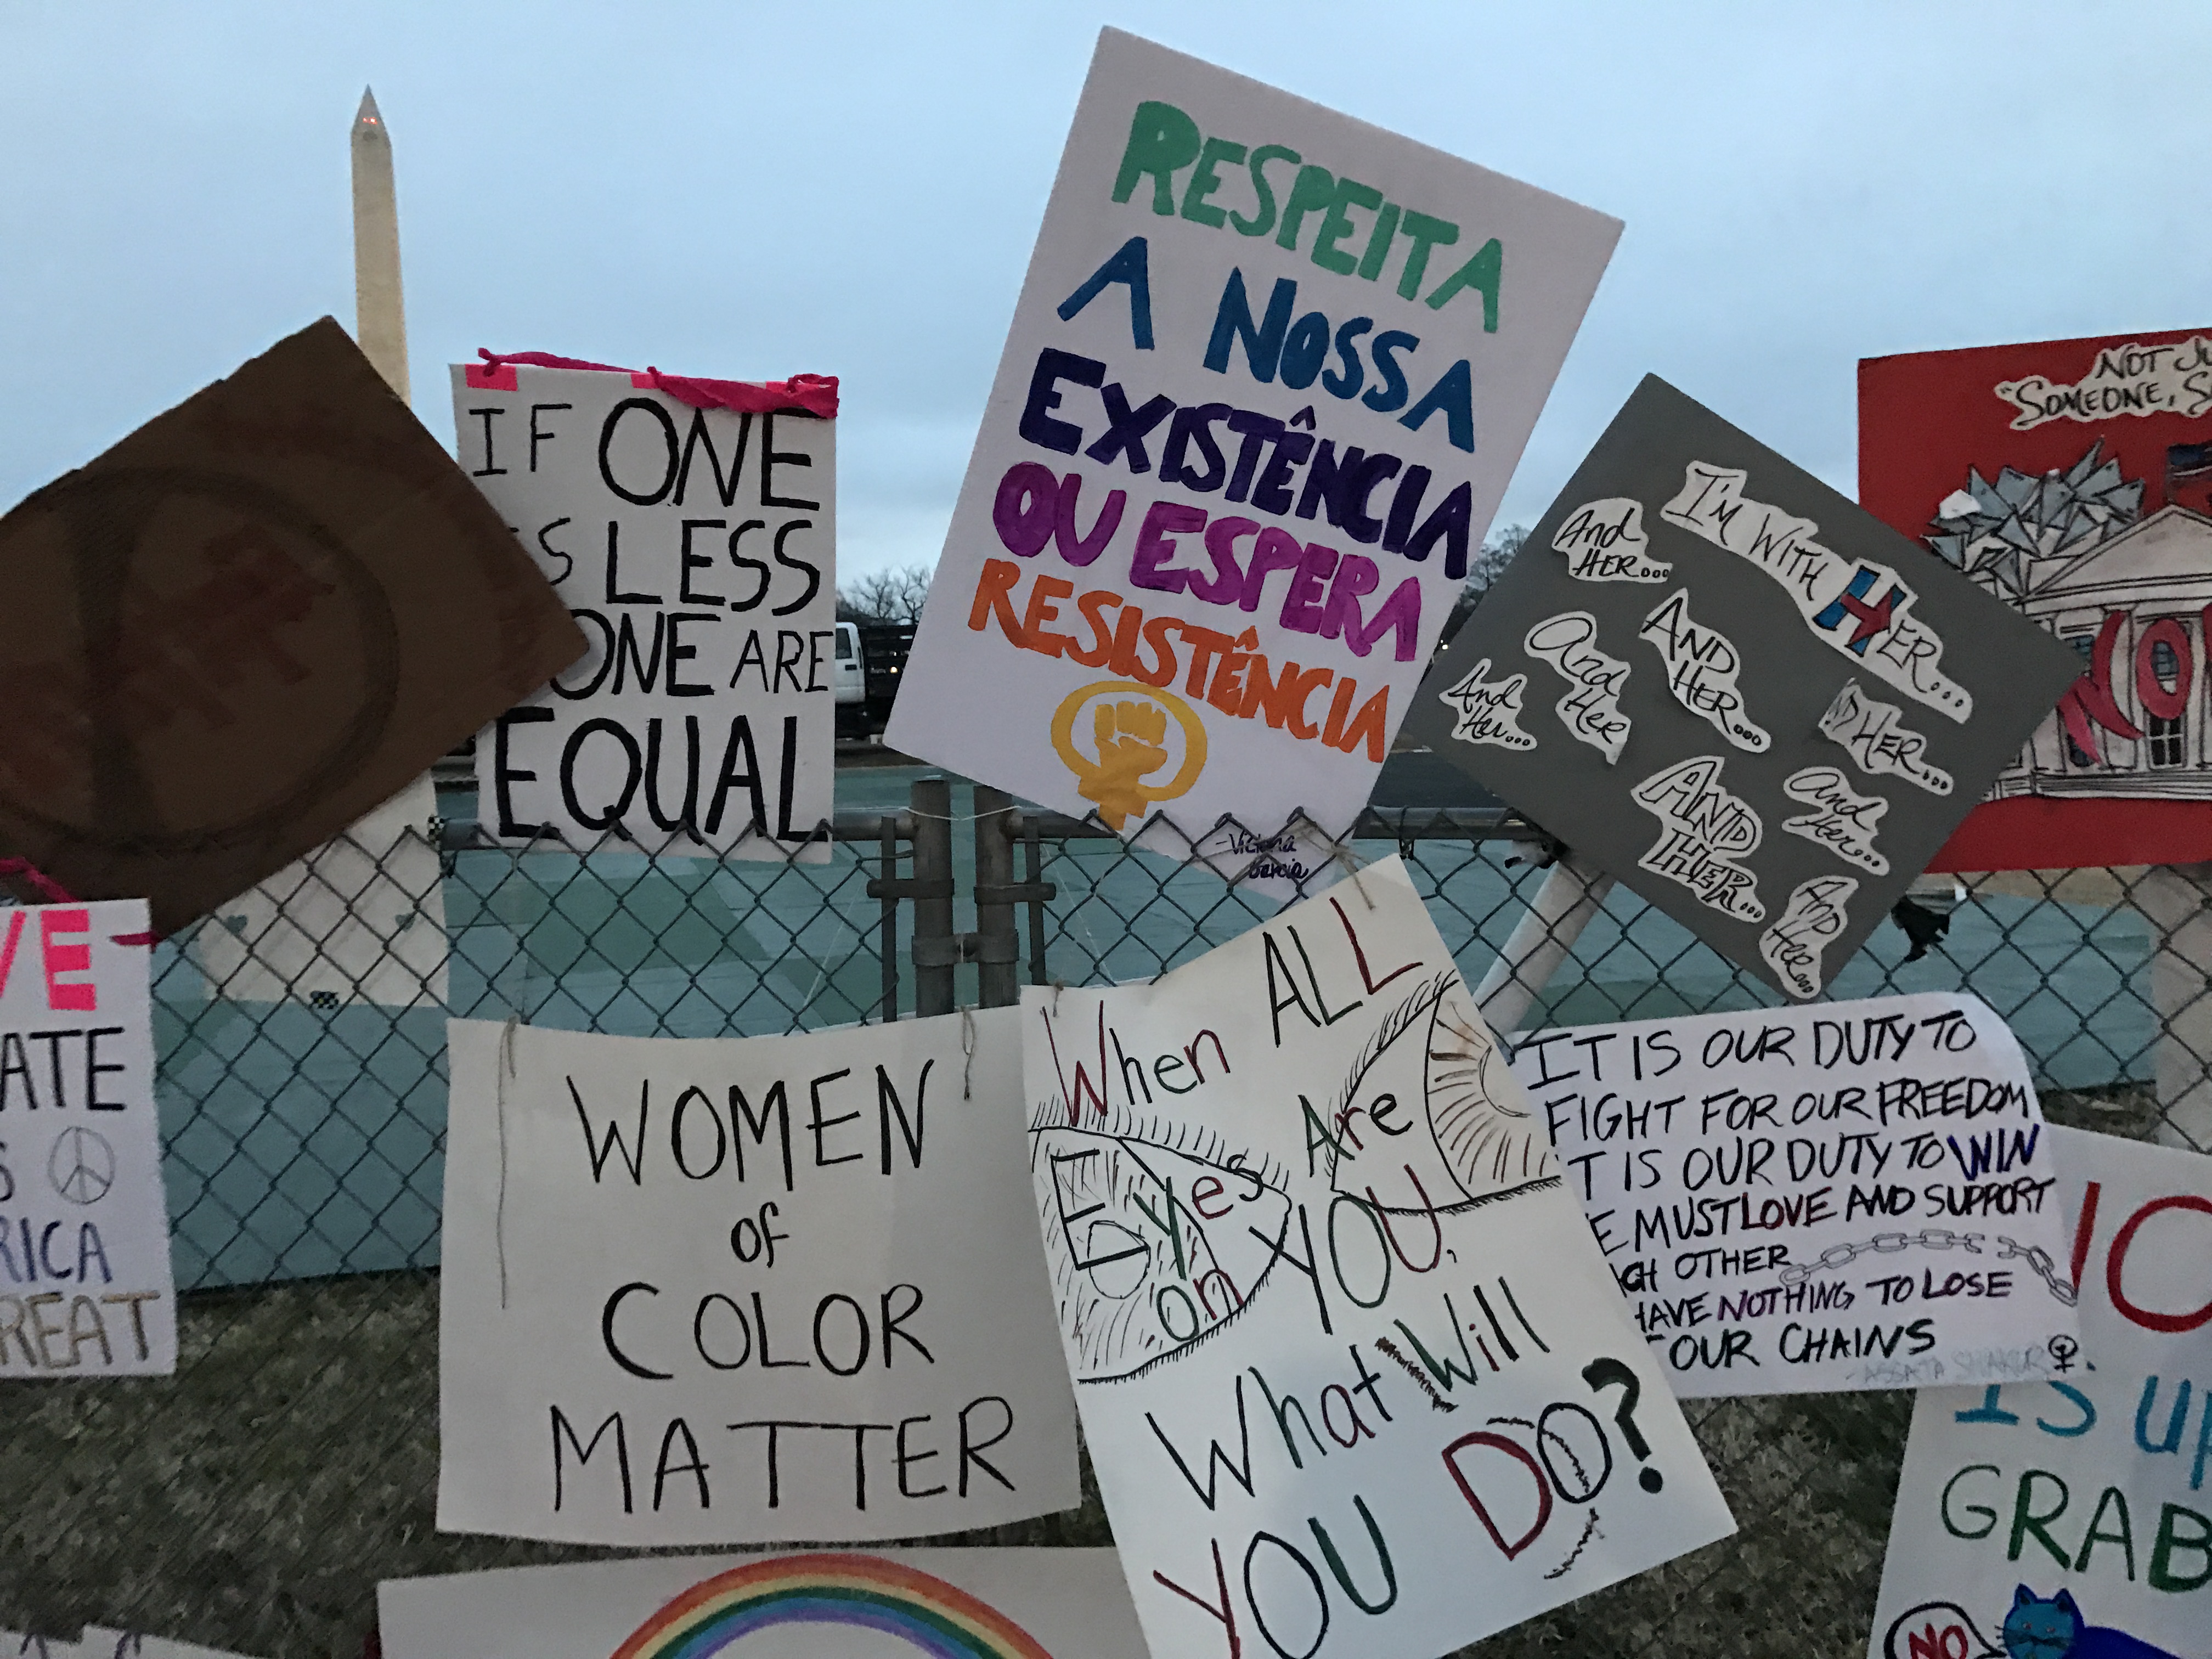 IF ONE
IS LESS
ONE ARE
EQUAL
RESPEITA
A NOSSA
EXISTÊNCIA
OU ESPERA
RESISTÊNCIA
-Victoria
Garcia
I'M WITH HER...
And
HER...
AND
HER...
And
Her
And
Her...
HER...
AND
HER...
And
Her...
And
Her...
NOT
"SOMEONE,
NO
VE
ATE
S
RICA
REAT
WOMEN
of
COLOR
MATTER
When ALL
Eyes Are
on YOU,
What Will
YOU DO?
IT IS OUR DUTY TO
FIGHT FOR OUR FREEDOM
T IS OUR DUTY TO WIN
E MUST LOVE AND SUPPORT
CH OTHER
HAVE NOTHING TO LOSE
OUR CHAINS
-ASSATA SHAKUR
NO
IS UP
GRAB
NO